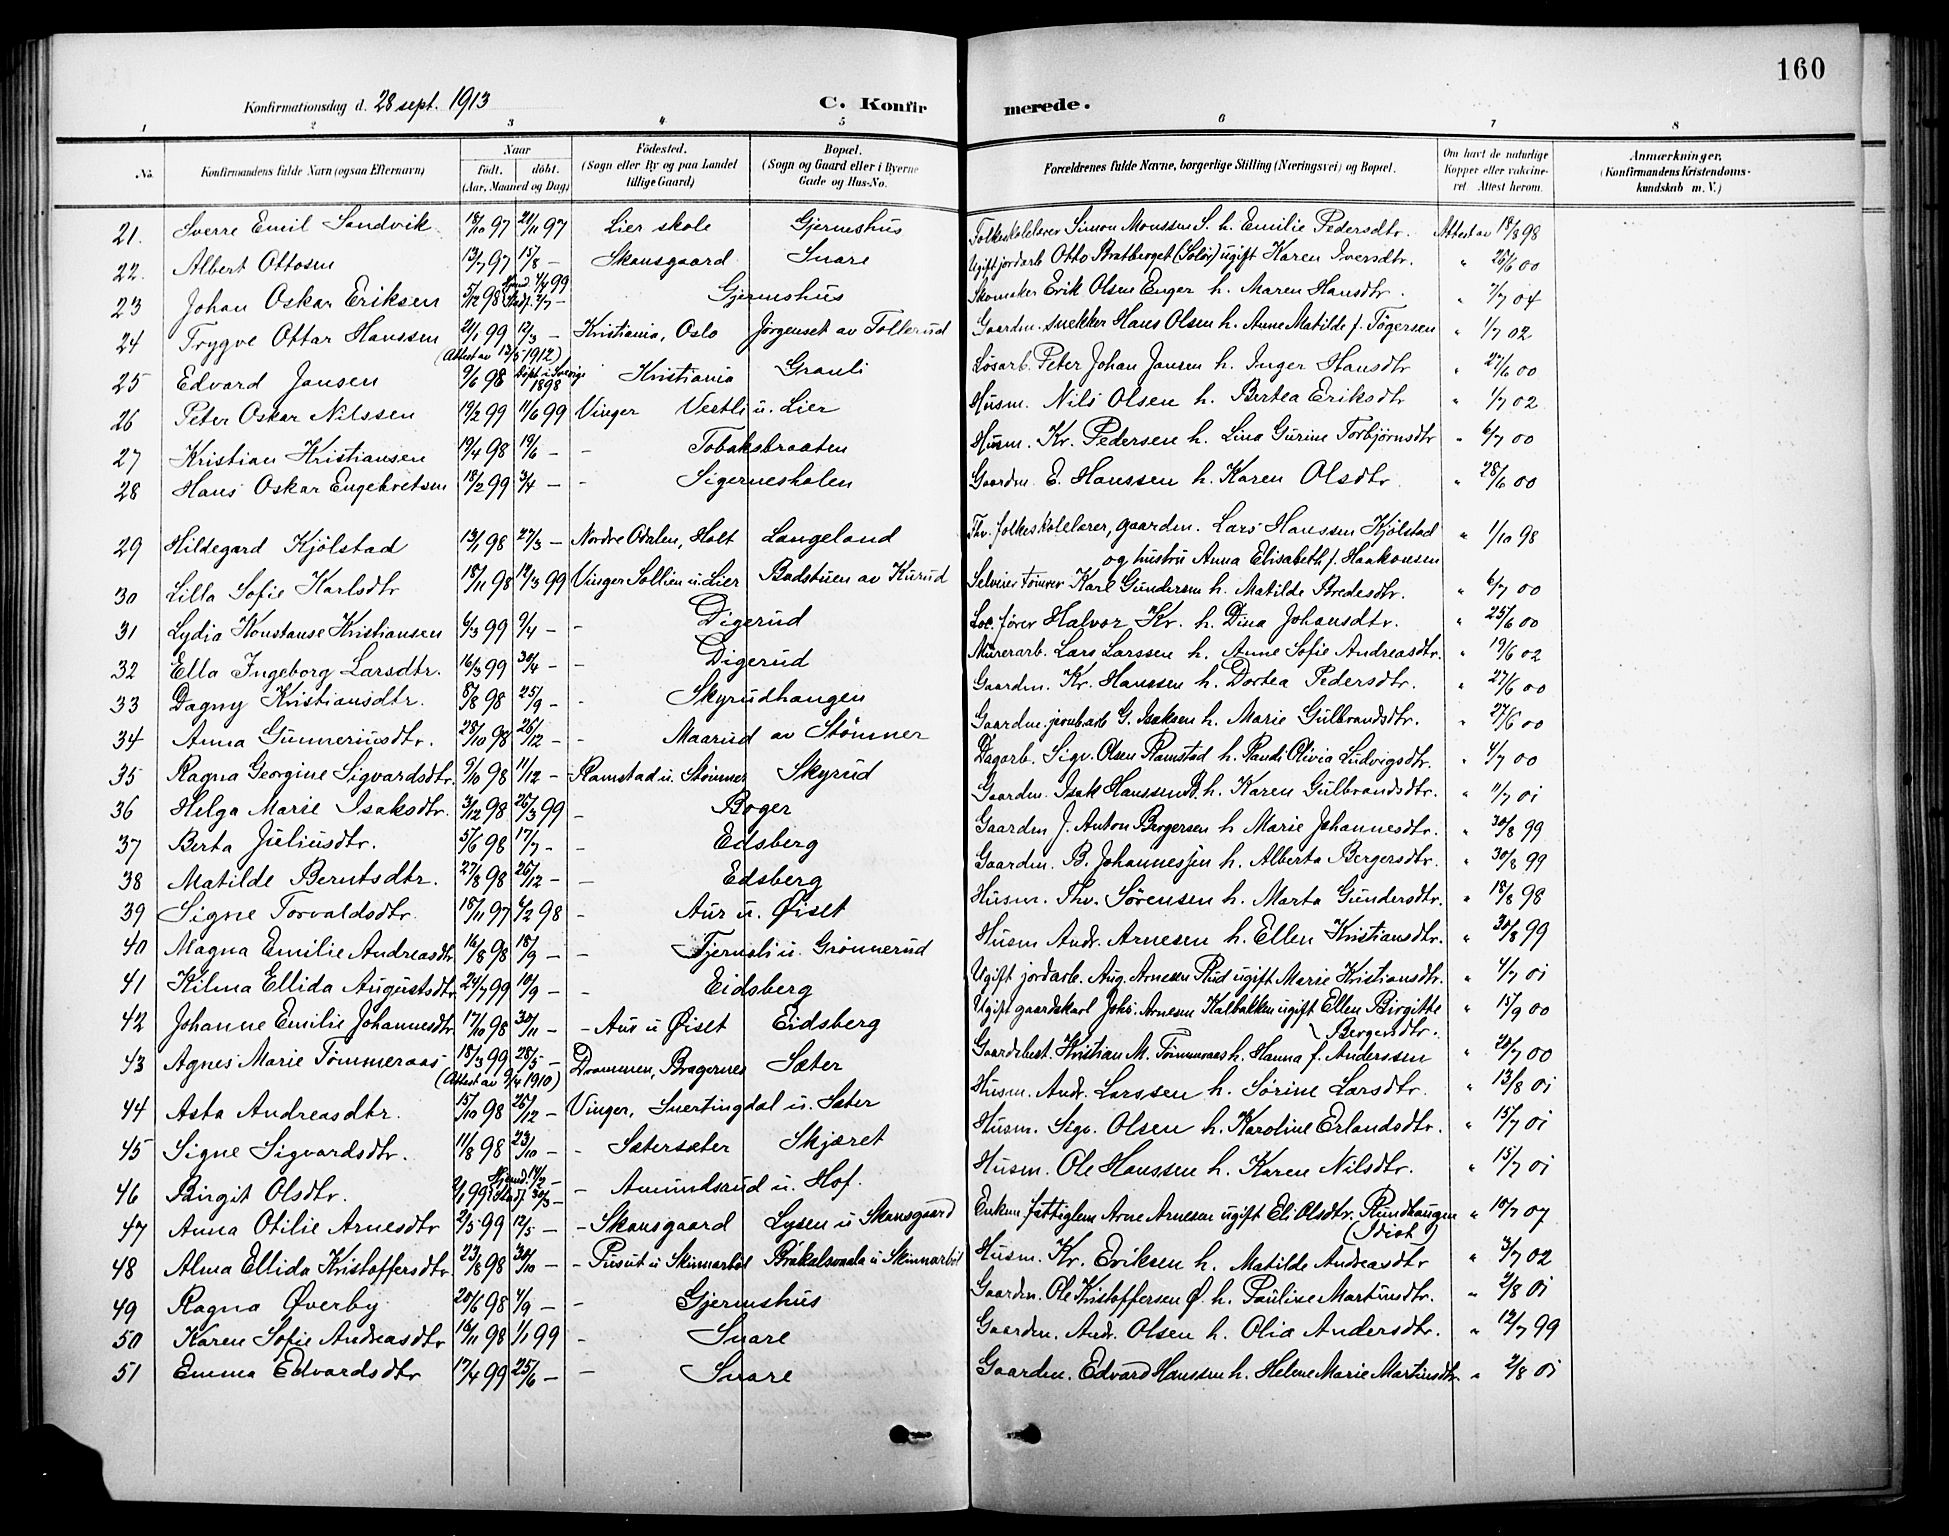 160
Konfirmationsdag d. 28 sept. 1913
C. Konfirmerede.
1 2 3 4 5 6 7 8
No. Konfirmandens fulde Navn (ogsaa Efternavn) Naar födt. döbt. (Aar, Maaned og Dag) Födested. (Sogn eller By og paa Landet tillige Gaard) Bopæl. (Sogn og Gaard eller i Byerne Gade og Hus-No. Forældrenes fulde Navne, borgerlige Stilling (Næringsvei) og Bopæl. Om havt de naturlige Kopper eller vakcineret. Attest herom. Anmærkninger. (Konfirmandens Kristendomskundskab m. V.)
21. Sverre Emil Sandvik 18/10 97 21/11 97 Lier skole Gjermshus Folkeskolelærer Simon Monssen S. h. Emilie Pedersdtr. Attest av 18/8 98
22. Albert Ottosen 13/7 97 15/8 - Skansgaard Snare Ugift jordarb Otto Bratberget (Solør) ugift Karen Iversdtr. " 25/6 00
23 Johan Oskar Eriksen 5/12 98 Hjmd. 4/4 99 Stadf. 2/7 - Gjermshus Skomaker Erik Olsen Enger h. Maren Hansdtr. " 7/7 04
24 Trygve Ottar Hanssen 21/1 99 12/3 - Kristiania, Oslo Jørgenset av Tollerud Gaardm. snekker Hans Olsen h. Anne Matilde f. Tøgersen " 1/7 02
(Attest av 13/5 1912)
25 Edvard Jansen 9/6 98 Døpt i Sverige 1898 Kristiania Granli Løsarb. Peter Johan Jansen h. Inger Hansdtr " 27/6 00
26 Peter Oskar Nilssen 19/2 99 11/6 99 Vinger Vestli u. Lier Husm. Nils Olsen h. Bertea Eriksdtr " 1/7 02
27 Kristian Kristiansen 19/4 98 19/6 - - Tobaksbraaten Husm. Kr. Pedersen h. Lina Gurine Torbjørnsdtr " 6/7 00
28 Hans Oskar Engebretsen 18/2 99 3/4 - - Sigernesholen Gaardm. E. Hanssen h. Karen Olsdtr " 28/6 00
29 Hildegard Kjölstad 13/1 98 27/3 - Nordre Odalen, Holt Langeland Fhv. folkeskolelærer, gaardm. Lars Hanssen Kjölstad " 1/10 98
og hustru Anna Elisabeth f. Haakonsen
30 Lilla Sofie Karlsdtr 18/11 98 12/3 99 Vinger Sollien u. Lier Badstuen av Kurud Selveier tømrer Karl Gundersen h. Matilde Bredesdtr. " 6/7 00
31 Lydia Konstanse Kristiansen 6/3 99 9/4 - - Digerud Loc. fører Halvor Kr. h. Dina Johansdtr. " 25/6 00
32 Ella Ingeborg Larsdtr. 16/3 99 30/4 - - Digerud Murerarb. Lars Larssen h. Anne Sofie Andreasdtr. " 19/6 02
33 Dagny Kristiansdtr. 8/8 98 25/9 - - Skyrudhangen Gaardm. Kr. Hanssen h. Dortea Pedersdtr. " 27/6 00
34 Anna Gunneriusdtr. 28/10 98 26/12 - - Maarud av Stømner Gaardm. jernb.arb G. Isaksen h. Marie Gulbrandsdtr. " 27/6 00
35 Ragna Georgine Sigvardsdtr. 9/10 98 11/12 - - Ramstad u. Stømner Skyrud Dagarb. Sigv. Olsen Ramstad h. Randi Olivia Ludvigsdtr. " 4/7 00
36 Helga Marie Isaksdtr. 3/12 98 26/3 99 - Boger Gaardm. Isak Hanssen B. h. Karen Gulbrandsdtr. " 11/7 01
37 Berta Juliusdtr. 5/6 98 17/7 - - Edsberg Gaardm J. Anton Bergersen h Marie Johannesdtr. " 30/8 99
38 Matilde Berntsdtr. 27/8 98 26/12 - - Edsberg Gaardm. B. Johannessen h. Alberta Bergersdtr. " 30/8 99
39 Signe Torvaldsdtr. 18/11 97 6/2 98 - Aur u. Øiset Husm. Thv. Sörensen h. Marta Gundersdtr. " 18/8 98
40 Magna Emilie Andreasdtr 16/8 98 18/9 - - Fjernsli u. Grønnerud Husm Andr. Arnesen h. Ellen Kristiansdtr. " 30/8 99
41 Kilma Ellida Augustsdtr 24/7 99 10/9 - - Eidsberg Ugift jordarb. Aug. Arnesen Rud ugift Marie Kristiansdtr. " 4/7 01
42 Johanne Emilie Johannesdtr 17/10 98 30/11 - - Aur u Øiset Eidsberg Ugift gaardskarl Johs. Arnesen Kalbakken ugift Ellen Birgitte Bergersdtr. " 15/9 00
43 Agnes Marie Tömmeraas 18/3 99 28/5 - Drammen, Bragernes Sæter Gaardsbest. Kristian M. Tømmeraas h. Hanna f. Anderssen " 28/7 00
(Attest av 9/4 1910)
44 Asta Andreasdtr. 15/10 98 26/12 - Vinger, Snertingdal u. Sæter Husm. Andr. Larssen h. Sörine Larsdtr. " 13/8 01
45 Signe Sigvardsdtr. 11/8 98 23/10 - - Satersæter Skjæret Husm. Sigv. Olsen h. Karoline Erlandsdtr. " 15/7 01
46 Birgit Olsdtr. 2/1 99 Hjemd. 14/2 - Stadf. 30/3 - - Amundsrud u. Hof. Husm. Ole Hanssen h. Karen Nilsdtr. " 15/7 01
47 Anna Otilie Arnesdtr 2/5 99 12/5 - - Skansgaard Lysen u Skansgaard Enkem. fattiglem Arne Arnesen ugift Eli Olsdtr. Rundhaugen (Idiot) " 10/7 07
48 Alma Ellida Kristoffersdtr. 23/8 98 30/10 - - Pusut u Skinnarbøl Bråkalsmala u Skinnarbøl Husm. Kr. Eriksen h. Matilde Andreasdtr " 3/7 02
49 Ragna Øverby 20/6 98 4/9 - - Gjermshus Gaardm. Ole Kristoffersen Ø. h. Pauline Martinsdtr. " 2/8 01
50 Karen Sofie Andreasdtr 16/11 98 1/1 99 - Snare Gaardm. Andr. Olsen h. Olia Andersdtr. " 12/7 99
51 Emma Edvardsdtr 17/4 99 25/6 - - Snare Gaardm. Edvard Hanssen h. Helene Marie Martinsdtr. " 2/8 01